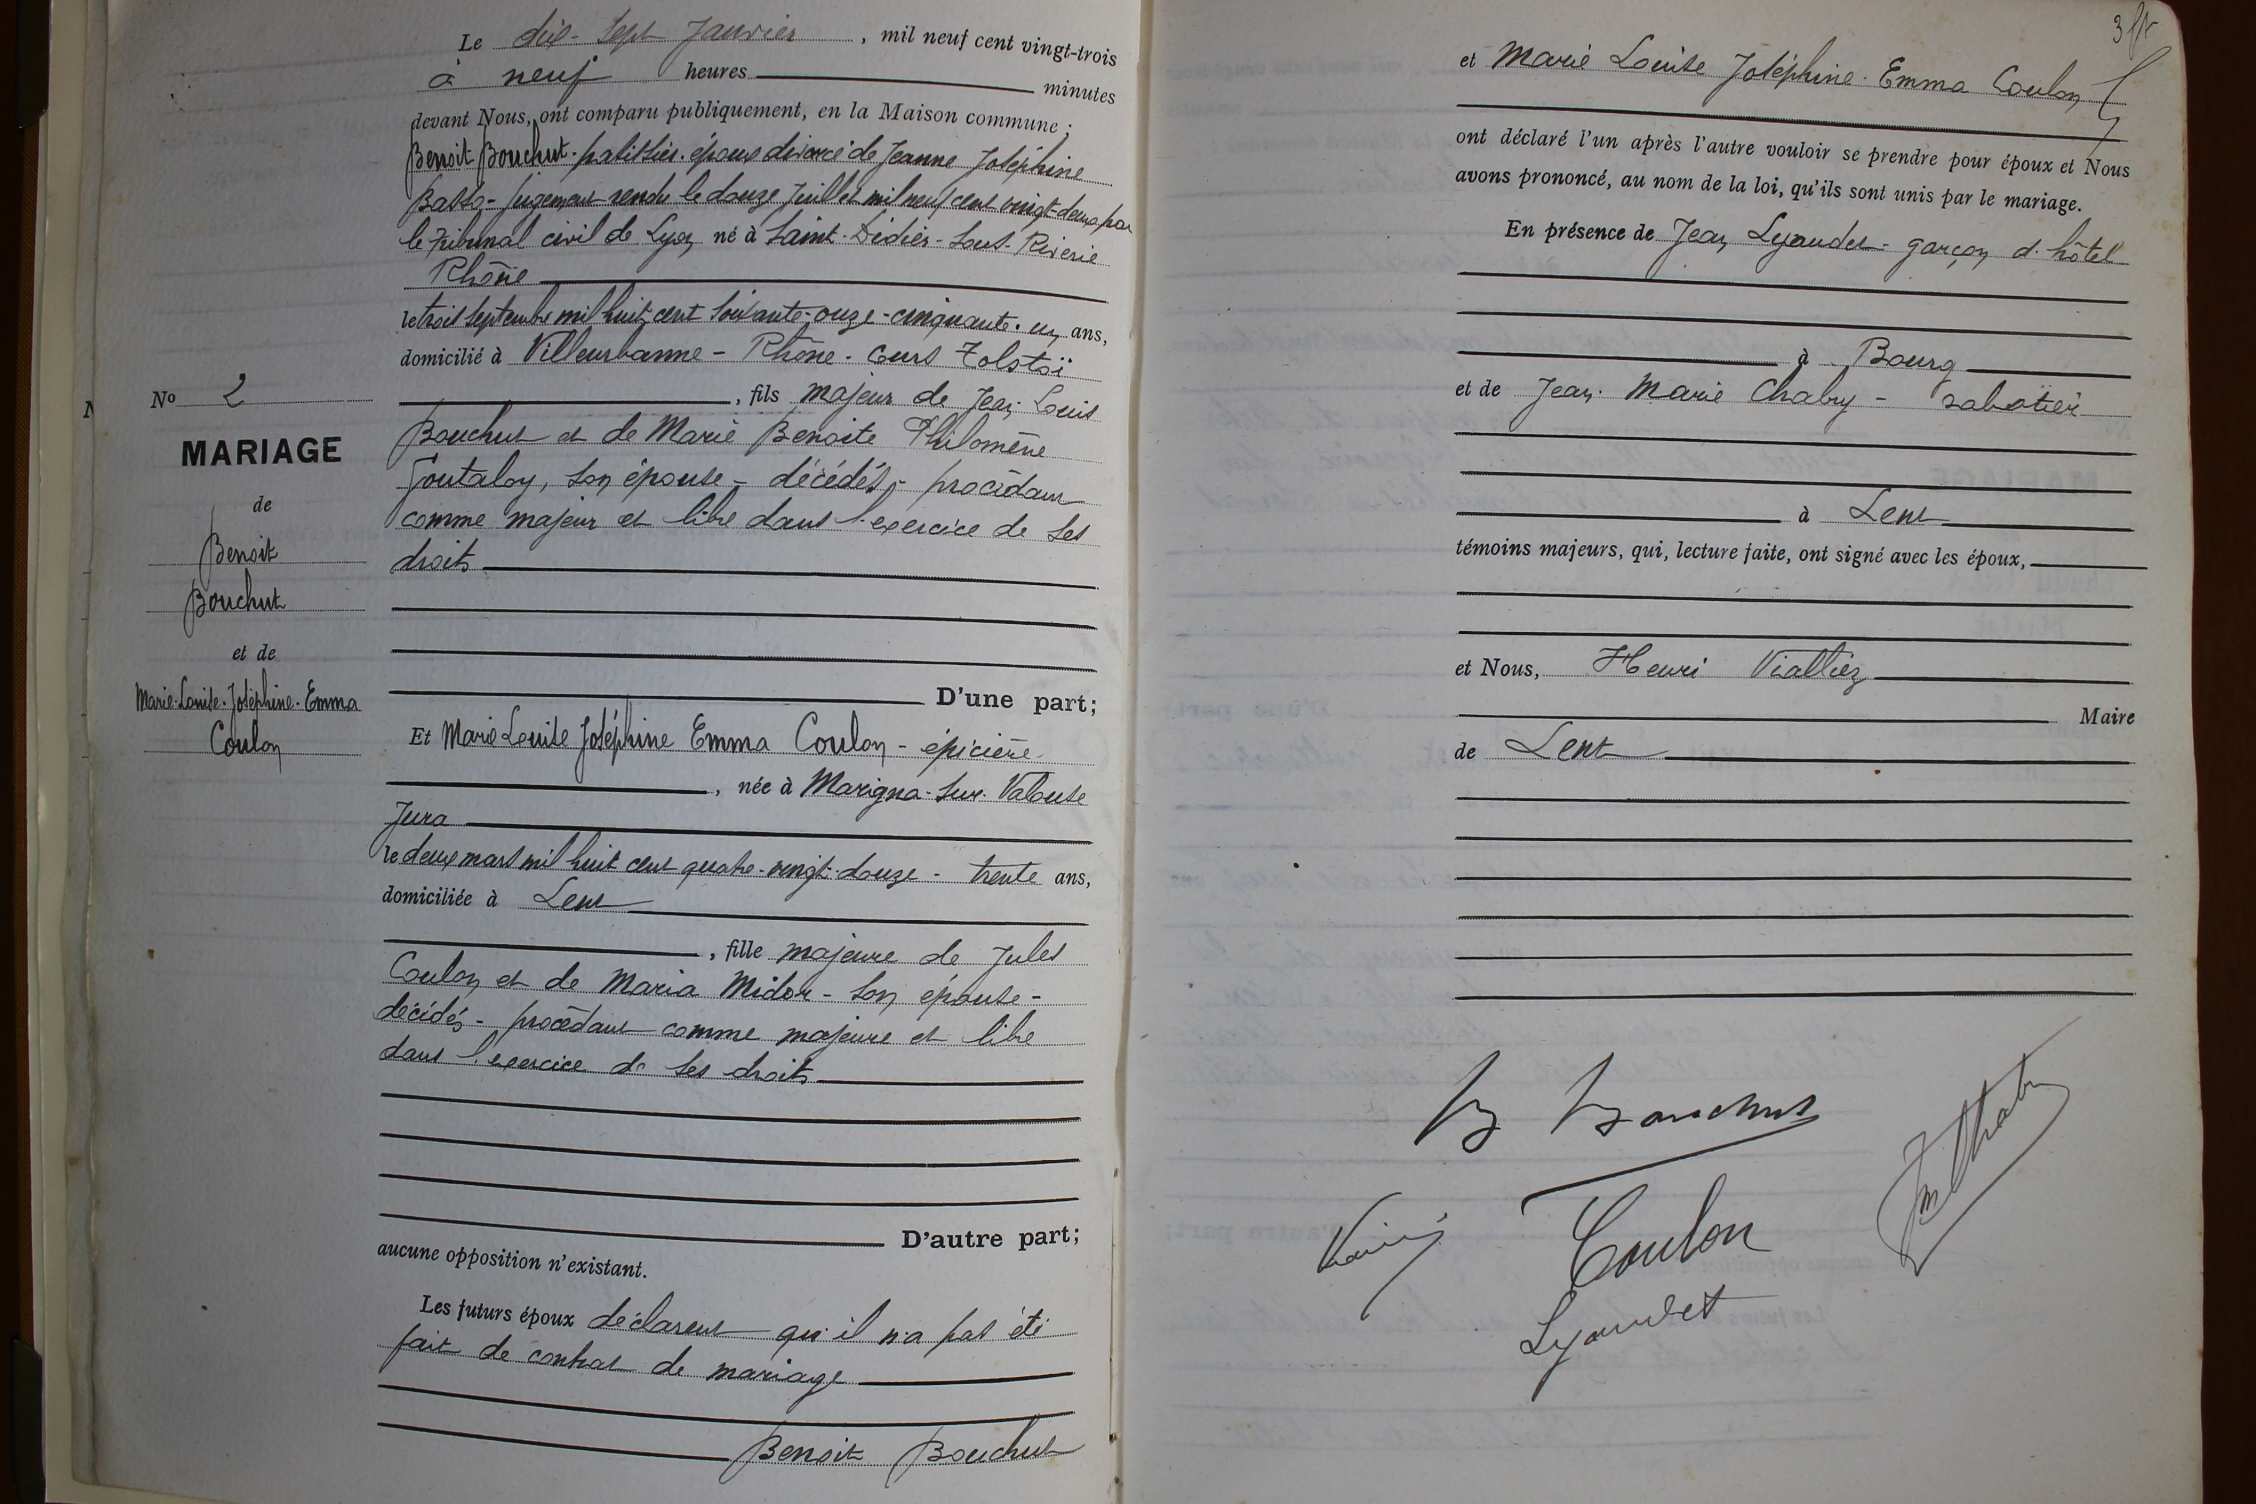 Le dix-sept Janvier, mil neuf cent vingt-trois
à neuf heures minutes
devant Nous, ont comparu publiquement, en la Maison commune ;
Benoit Bouchut - patissier - époux divorcé de Jeanne Joséphine
jugement rendu le douze Juillet mil neuf cent vingt-deux par
le Tribunal civil de Lyon né à Saint-Didier-sous-Riverie
Rhône
le trois septembre mil huit cent soixante-onze - cinquante-un ans,
domicilié à Villeurbanne - Rhône - Cours Tolstoï
, fils majeur de Jean-Louis
Bouchut et de Marie Benoite Philomène
son épouse - décédés - procédant
comme majeur et libre dans l'exercice de ses
droits
D'une part;
Et Marie Louise Joséphine Emma Coulon - épicière
, née à Marigna-sur-Valouse
Jura
le deux mars mil huit cent quatre-vingt-douze - trente ans,
domiciliée à Lent
, fille majeure de Jules
Coulon et de Maria Midor - son épouse -
décédés - procédant comme majeure et libre
dans l'exercice de ses droits
D'autre part;
aucune opposition n'existant.
Les futurs époux déclarent qu'il n'a pas été
fait de contrat de mariage
Benoit Bouchut
No 2
MARIAGE
de
Benoit
Bouchut
et de
Marie-Louise-Joséphine-Emma
Coulon
3
et Marie Louise Joséphine-Emma Coulon
ont déclaré l'un après l'autre vouloir se prendre pour époux et Nous
avons prononcé, au nom de la loi, qu'ils sont unis par le mariage.
En présence de Jean Lyaudet - garçon d'hôtel
à Bourg
et de Jean-Marie Chabry - sabotier
à Lent
témoins majeurs, qui, lecture faite, ont signé avec les époux,
et Nous, Henri Vialliez
Maire
de Lent
B Bouchut
Coulon
Lyaudet